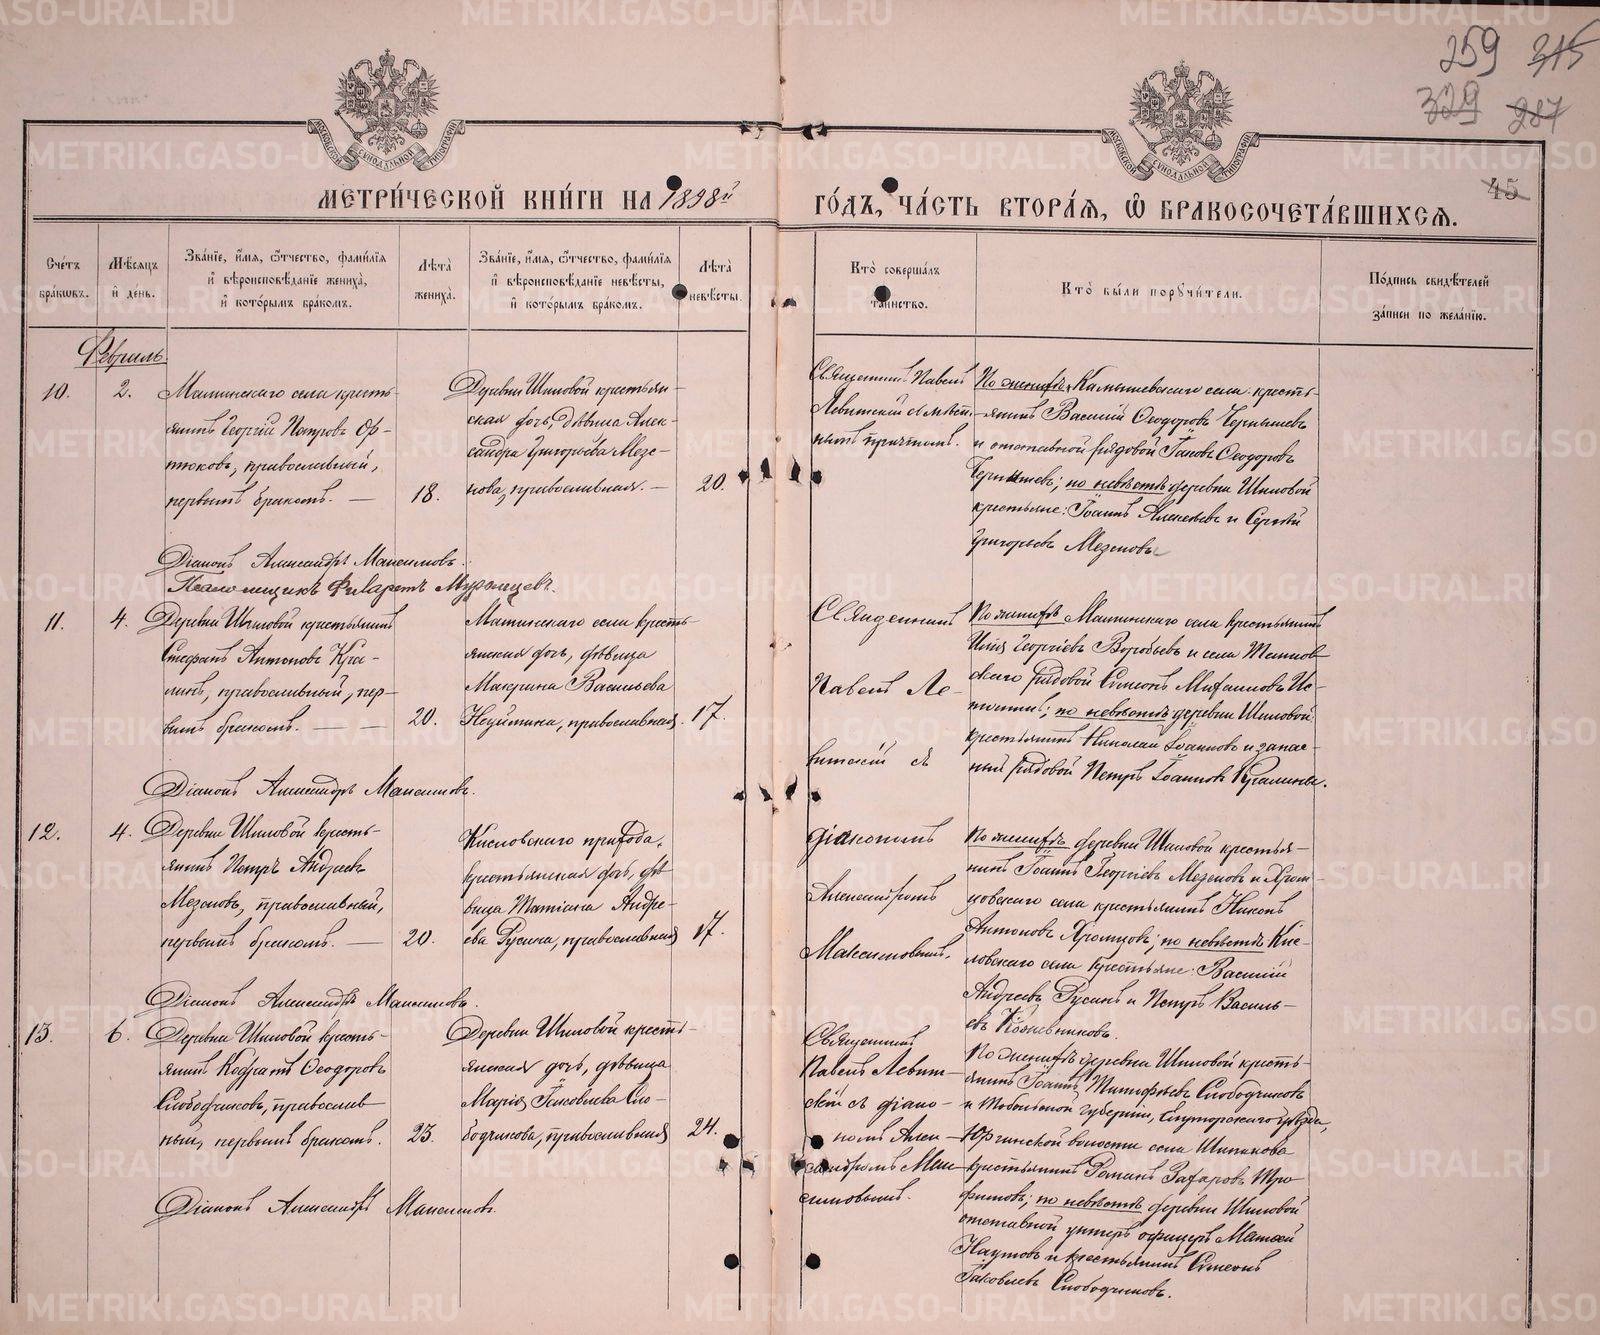 259 315
329 287
45
МОСКОВСКОЙ СУНОДАЛЬНОЙ ТИПОГРАФІИ
МОСКОВСКОЙ СУНОДАЛЬНОЙ ТИПОГРАФІИ
МЕТРИ́ЧЕСКОЙ КНИ́ГИ НА 1898й
ГО́ДЪ, ЧА́СТЬ ВТОРА́Я, Ѡ БРАКОСОЧЕТА́ВШИХСЯ.
Сче́тъ бра́кѡвъ.
Мѣ́сяцъ и҆ де́нь.
Зва́нїе, и҆́мя, ѻ҆́тчество, фами́лїя и҆ вѣроисповѣ́данїе жениха̀, и҆ кото́рымъ бра́комъ.
Лѣ́та жениха̀.
Зва́нїе, и҆́мя, ѻ҆́тчество, фами́лїя и҆ вѣроисповѣ́данїе невѣ́сты, и҆ кото́рымъ бра́комъ.
Лѣ́та невѣ́сты.
Кто̀ соверша́лъ та́инство.
Кто̀ бы́ли порꙋчи́тели.
По́дпись свидѣ́телей за́писи по жела́нїю.
Февраль.
10.
2.
Маминскаго села кресть-
янинъ Георгій Петровъ Ор-
тюковъ, православный,
первымъ бракомъ. —
18.
Деревни Шиловой крестьян-
ская дочь, дѣвица Алек-
сандра Григорьева Мезе-
нова, православная. —
20.
Священникъ Павелъ
Левитскій съ мѣст-
нымъ причтомъ.
По женихѣ: Камышевскаго села кресть-
янинъ Василій Ѳеодоровъ Чернышевъ
и отставной рядовой Іаковъ Ѳеодоровъ
Чернышевъ; по невѣстѣ деревни Шиловой
крестьяне: Іоаннъ Алексѣевъ и Сергѣй
Григорьевъ Мезеновы
Діаконъ Александръ Максимовъ.
Псаломщикъ Филаретъ Мурзинцевъ.
11.
4.
Деревни Шиловой крестьянинъ
Стефанъ Антоновъ Кра-
линъ, православный, пер-
вымъ бракомъ. — —
20.
Маминскаго села кресть-
янская дочь, дѣвица
Макрина Васильева
православная.
17.
Священникъ
Павелъ Ле-
витскій съ
По женихѣ Маминскаго села крестьянинъ
Илія Георгіевъ Воробьевъ и села
скаго рядовой Симеонъ Михаиловъ
по невѣстѣ деревни Шиловой
крестьянинъ Николай Іоанновъ и запас-
ный рядовой Петръ Іоанновъ Кралины.
Діаконъ Александръ Максимовъ.
12.
4.
Деревни Шиловой кресть-
янинъ Петръ Андреевъ
Мезеновъ, православный,
первымъ бракомъ. —
20.
Кисловскаго прихода,
крестьянская дочь, дѣ-
вица Татіана Андре-
ева Русина, православная
17.
діакономъ
Александромъ
Максимовымъ.
По женихѣ деревни Шиловой крестья-
нинъ Іоаннъ Георгіевъ Мезеновъ и Хром-
цовскаго села крестьянинъ Никонъ
Антоновъ Хромцовъ; по невѣстѣ Кис-
ловскаго села крестьяне: Василій
Андреевъ Русинъ и Петръ Василь-
евъ Кожевниковъ.
Діаконъ Александръ Максимовъ.
13.
6.
Деревни Шиловой кресть-
янинъ Кодратъ Ѳеодоровъ
Слободчиковъ, православ-
ный, первымъ бракомъ.
23.
Деревни Шиловой кресть-
янская дочь, дѣвица
Марія Іаковлева Сло-
бодчикова, православная
24.
Священникъ
Павелъ Левит-
скій съ діако-
номъ Алек-
сандромъ Мак-
симовымъ.
По женихѣ деревни Шиловой кресть-
янинъ Іоаннъ Тимофѣевъ Слободчиковъ
и Тобольской губерніи, Ялуторскаго уѣзда,
Юргинской волости села Шипакова
крестьянинъ Романъ Захаровъ Тро-
фимовъ; по невѣстѣ деревни Шиловой
отставной унтеръ офицеръ Матѳей
Наумовъ и крестьянинъ Симеонъ
Іаковлевъ Слободчиковъ.
Діаконъ Александръ Максимовъ.
METRIKI.GASO-URAL.RU